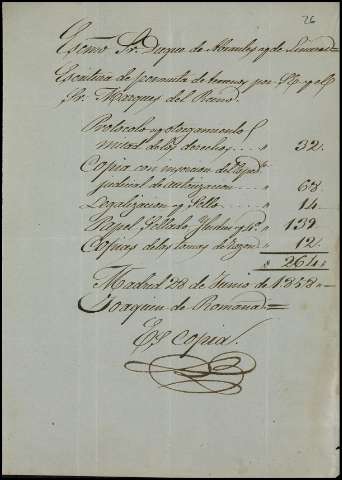 26
Escmo Sr. Duque de Abrantes y de Linares=
Escritura de permuta de terrenos por S.E. y el
Sr. Marques del Reino.
Protocolo y otorgamiento
mitad de los derechos 32.
Copia con insercion de
judicial de autorizacion .... 68.
Legalizacion y Sello .... 14
Papel Sellado 139
Copias de las tomas de razon 12.
264
Madrid 28 de Junio de 1858
Joaquin de Romana=
Es copia.